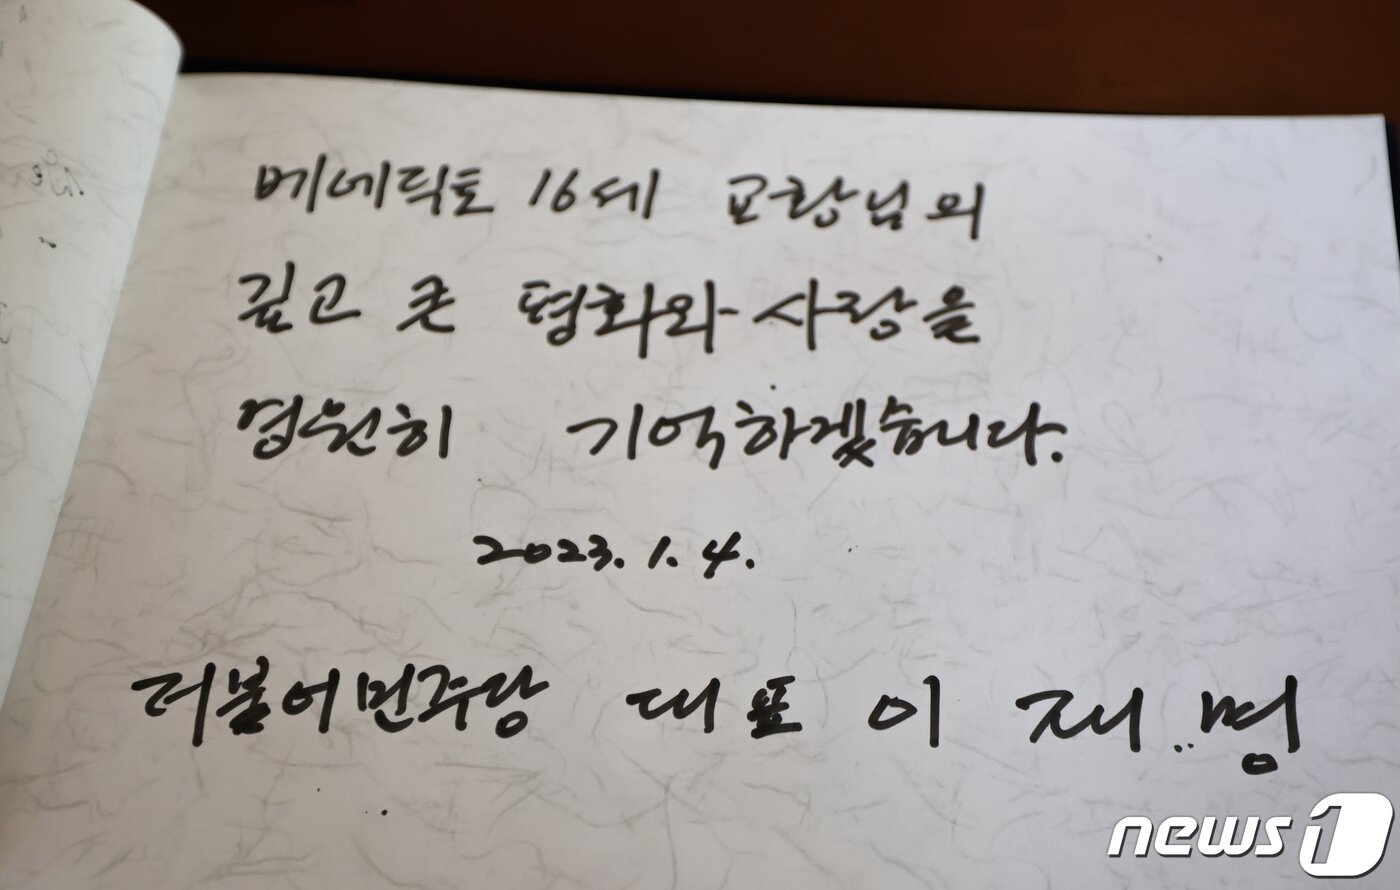 베네딕토 16세 교황님의
깊고 큰 평화와 사랑을
영원히 기억하겠습니다.
2023. 1. 4.
더불어민주당 대표 이재명
news1